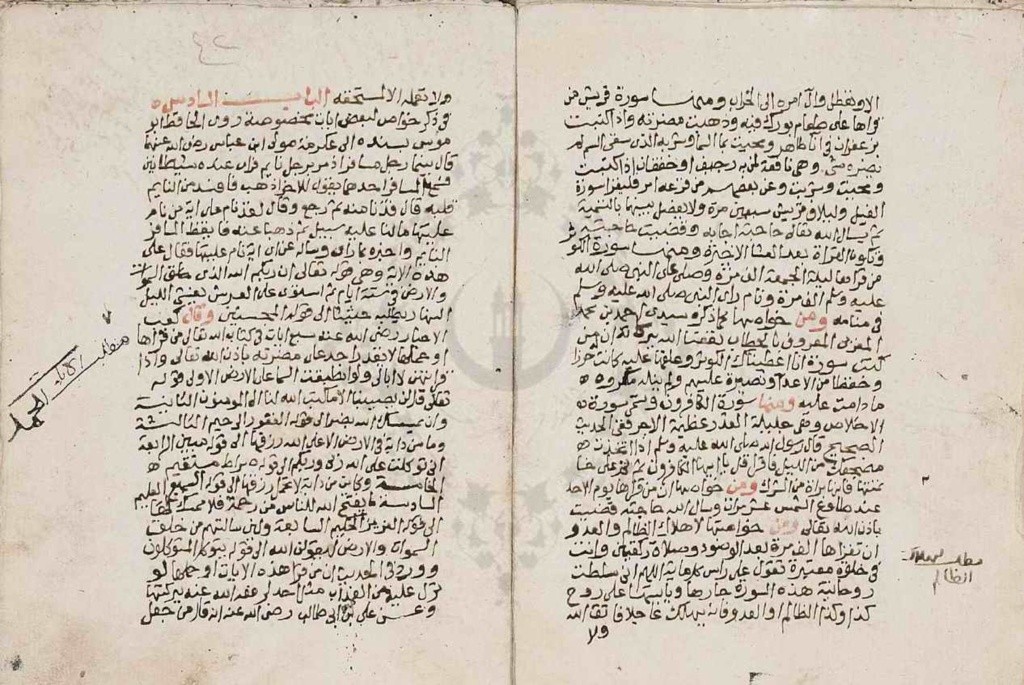 الاويقظ وال امره الى الخراب ومنها سورة قريش من
قراها على طعام بورك فيه وذهبت مضرته واذا كتبت
بزعفران في انا طاهر ومحيت بما السما وشربه الذي سقى السم لم
يضره شي وهي نافعة لمن به رجيف او خفقان اذا كتبت
ومحيت وشربت وعن بعضهم من فزعه امر فليقرا سورة
الفيل ولايلاف قريش سبعين مرة ولا يفصل بينهما بالتسمية
ثم يسال الله تعالى حاجته اجابه وقضيت حاجته
وتكون القراة بعد العشا الاخيرة ومنها سورة الكوثر
من قراها ليلة الجمعة الف مرة وصلى على النبي صلى الله
عليه وسلم الف مرة ونام راى النبي صلى الله عليه وسلم
في منامه ومن خواصها ما ذكره سيدي احمد بن محمد
المغربي المعروف بالحطاب نفعنا الله ببركته ان من
كتب سورة انا اعطيناك الكوثر وعلقها عليه كانت حرزا
وحفظا من الاعدا ونصيرة عليهم ولم ينله مكروه
ما دامت عليه ومنها سورة الكافرون وتسمى سورة
الاخلاص وهي جليلة القدر عظيمة الاجر ففي الحديث
الصحيح قال رسول الله صلى الله عليه وسلم اذا اخذت
مضجعك من الليل فاقرا قل يا ايها الكافرون ثم نم على
خاتمتها فانها براة من الشرك ومن خواصها ان من قراها يوم الاحد
عند طلوع الشمس عشر مرات وسال الله حاجته قضيت
باذن الله تعالى ومن خواصها لاهلاك الظالم والعدو
ان تقراها الف مرة بعد الوضوء وصلاة ركعتين وانت
في خلوة معتبرة تقول على راس كل ماية اللهم اني سلطت
روحانية هذه السورة حارها ويابسها على روح
كذا وكذا الظالم او العدو فانه يهلك عاجلا فاتق الله
ولا
مطلب لهلاك
الظالم
ولا تعمله الا لمستحقه الباب السادس
في ذكر خواص لبعض ايات مخصوصة روى الحافظ ابو
موسى بسنده الى عكرمة مولى ابن عباس رضي الله عنهما
قال بينما رجل مسافر اذ مر برجل نايم فراى عنده شيطانين
فسمع المسافر احدهما يقول للاخر اذهب فافسد على النايم
قلبه قال فدنا منه ثم رجع وقال لقد نام على اية من نام
عليها ما لنا عليه سبيل ثم ذهبا عنه فايقظ المسافر
النايم واخبره بما راى وساله عن اي اية نام عليها فقال على
هذه الاية وهي قوله تعالى ان ربكم الله الذي خلق السموات
والارض في ستة ايام ثم استوى على العرش يغشي الليل
النهار يطلبه حثيثا الى قوله المحسنين وقال كعب
الاحبار رضي الله عنه سبع ايات في كتاب الله تعالى من قراها
او حملها لا يقدر احد على مضرته باذن الله تعالى واذا
قراتهن لا ابالي ولو انطبقت السما على الارض الاولى قوله
تعالى قل لن يصيبنا الا ما كتب الله لنا الى المومنون الثانية
وان يمسسك الله بضر الى قوله الغفور الرحيم الثالثة
وما من دابة في الارض الا على الله رزقها الى قوله مبين الرابعة
اني توكلت على الله ربي وربكم الى قوله صراط مستقيم
الخامسة وكاين من دابة لا تحمل رزقها الى قوله السميع العليم
السادسة ما يفتح الله للناس من رحمة فلا ممسك لها
الى قوله العزيز الحكيم السابعة ولين سالتهم من خلق
السموات والارض ليقولن الله الى قوله يتوكل المتوكلون
وورد في الحديث ان من قرا هذه الايات او حملها لو
نزل عليه من العذاب مثل احد لرفعه الله عنه ببركتها
وعن علي بن ابي طالب رضي الله عنه انه قال من جعل